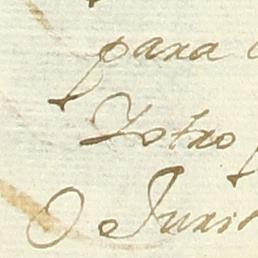 para
Yotro
O Juris